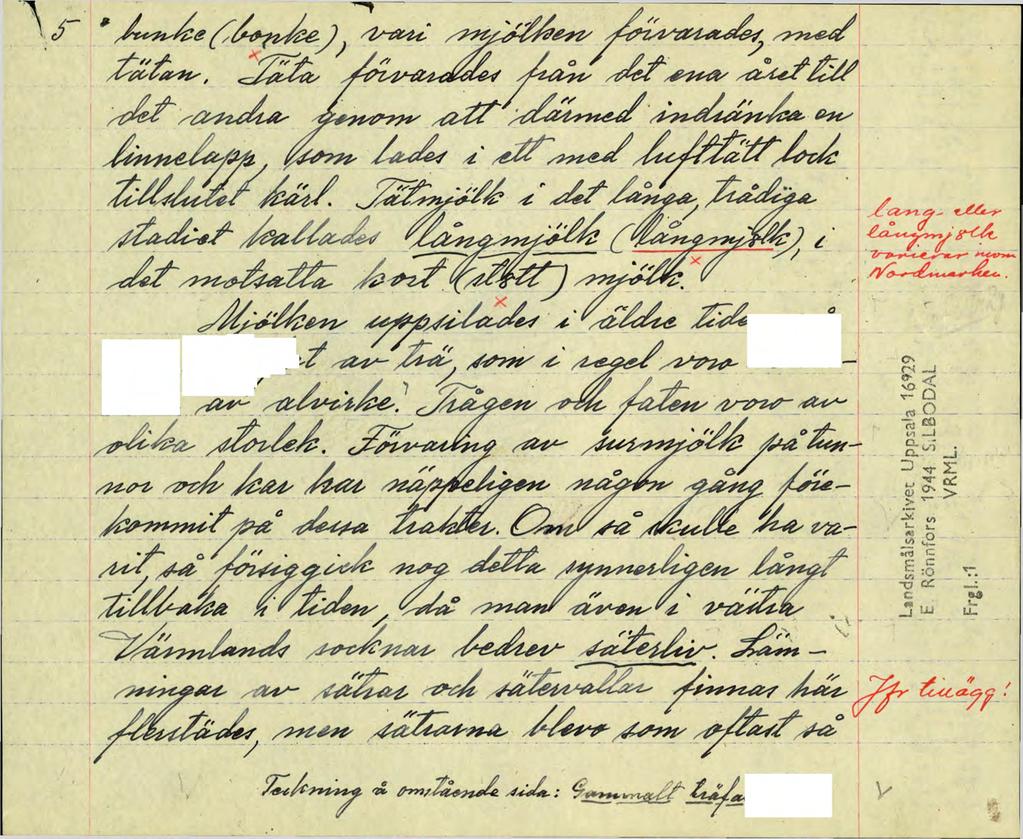 5
bunke (bonke), vari mjölken förvarades, med
tätan. Täta förvarades från det ena året till
det andra genom att därmed indränka en
linnelapp, som lades i ett med lufttätt lock
tillslutet kärl. Tätmjölk i det långa, trådiga
stadiet kallades långmjölk (långmjölk), i
det motsatta kort (stött) mjölk.
Mjölken uppsilades i äldre
av trä, som i regel voro
av alvirke. Trågen och faten voro av
olika storlek. Förvaring av surmjölk på tun-
nor och kar har näppeligen någon gång före-
kommit på dessa trakter. Om så skulle ha va-
rit, så försiggick nog detta synnerligen långt
tillbaka i tiden, då man även i västra
Värmlands socknar bedrev säterliv. Läm-
ningar av sätrar och sätervallar finnas här
flerstädes, men sätrarna blevo som oftast så
Teckning å omstående sida: Gammalt
lang- eller
långmjölk
varierar inom
Nordmarken.
Jfr tillägg!
Landsmålsarkivet Uppsala 16929
E. Rönnfors 1944 S.LBODAL
VRML.
Frgl.:1